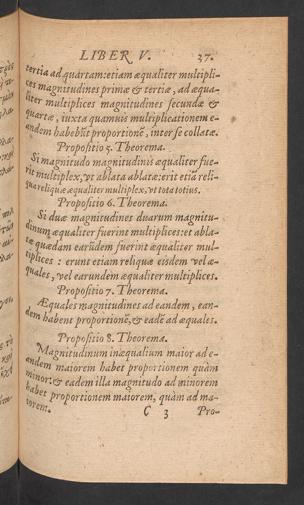 LIBER V. 37.
tertia ad quartam: etiam æqualiter multipli-
ces magnitudines primæ & tertiæ, ad æqua-
liter multiplices magnitudines secundæ &
quartæ, iuxta quamuis multiplicationem e-
andem habebūt proportionē, inter se collatæ.
Propositio 5. Theorema.
Si magnitudo magnitudinis æqualiter fue-
rit multiplex, vt ablata ablatæ: erit etiā reli-
qua reliquæ æqualiter multiplex, vt tota totius.
Propositio 6. Theorema.
Si duæ magnitudines duarum magnitu-
dinum æqualiter fuerint multiplices: et abla-
tæ quædam earūdem fuerint æqualiter mul-
tiplices : erunt etiam reliquæ eisdem vel æ-
quales, vel earundem æqualiter multiplices.
Propositio 7. Theorema.
Æquales magnitudines ad eandem, ean-
dem habent proportionē, & eadē ad æquales.
Propositio 8. Theorema.
Magnitudinum inæqualium maior ad e-
andem maiorem habet proportionem quàm
minor: & eadem illa magnitudo ad minorem
habet proportionem maiorem, quàm ad ma-
iorem.
C 3 Pro-